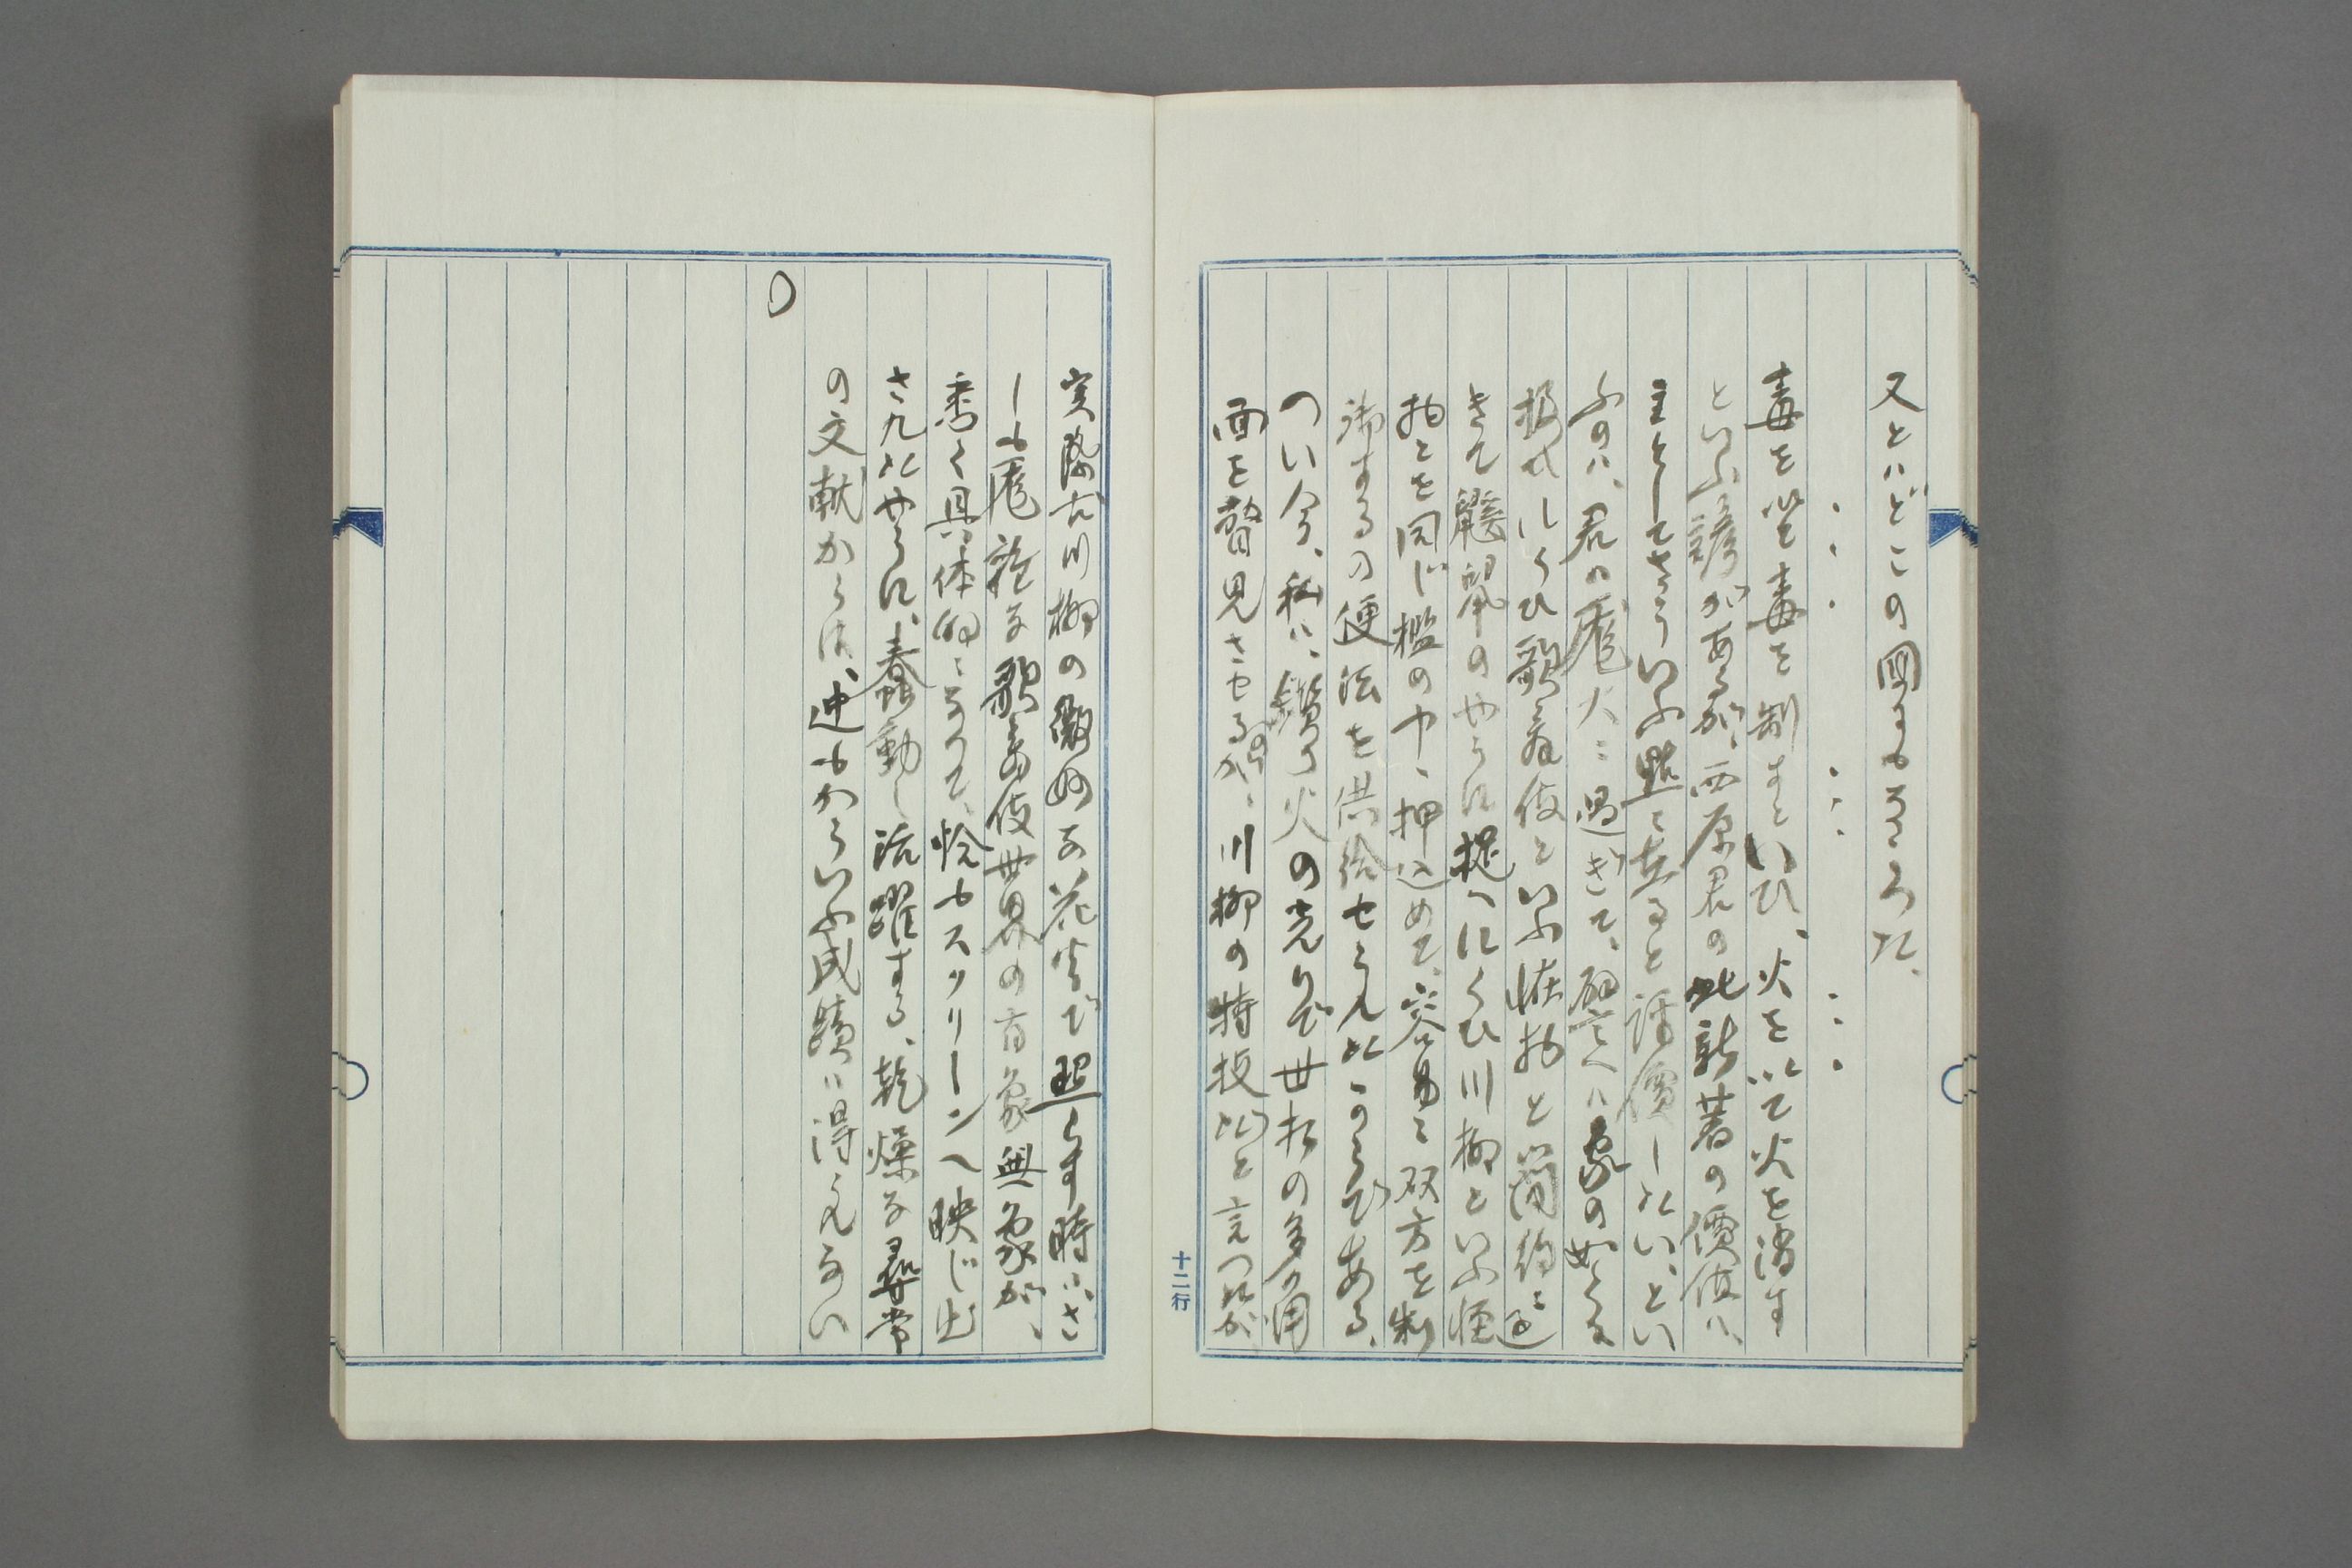 又とハどこの国にもあるまい。
毒を以て毒を制すといひ、火を以て火を滅す
といふ諺があるが、西原君の此新著の價値ハ、
主としてさういふ點に在ると評價したい、とい
ふのハ、君の
大に過ぎて、
ハ象の如く、
扱
にくひ歌舞伎といふ怪物と
きて鼴鼠のやうに捉へにくひ川柳といふ怪
物とを同じ檻の中へ押込めて、容易に双方を制
御するの便法を供給せられたからである。
つい今、私ハ、
火の光りで世相の多方
面を瞥見させるのが、川柳の特技だと言つたが、
実際古川柳の微妙な花火で照らす時ハ、さ
しも尨雜な歌舞伎世界の有象無象が、
悉く具体的になつて、恰もスクリーンへ映じ出
されたやうに、蠢動し活躍する。乾燥な尋常
の文献からは、迚もかういふ成績ハ得られない
〇
十二行